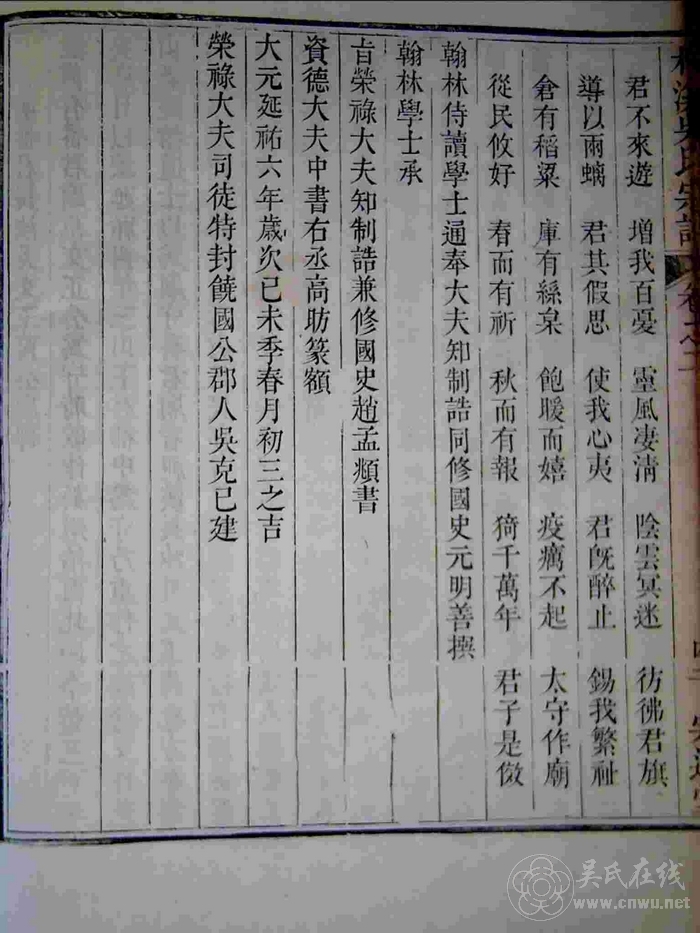 吳氏宗譜
君不來遊　增我百憂　靈風凄清　陰雲冥迷　彷彿君旗
導以兩螭　君其假思　使我心夷　君旣醉止　錫我繁祉
倉有稻粱　庫有絲枲　飽暖而嬉　疫癘不起　太守作廟
從民攸好　春而有祈　秋而有報　猗千萬年　君子是傚
翰林侍讀學士通奉大夫知制誥同修國史元明善撰
翰林學士承
旨榮祿大夫知制誥兼修國史趙孟頫書
資德大夫中書右丞高昉篆額
大元延祐六年歲次已未季春月初三之吉
榮祿大夫司徒特封饒國公郡人吳克已建
吴氏在线
www.cnwu.net